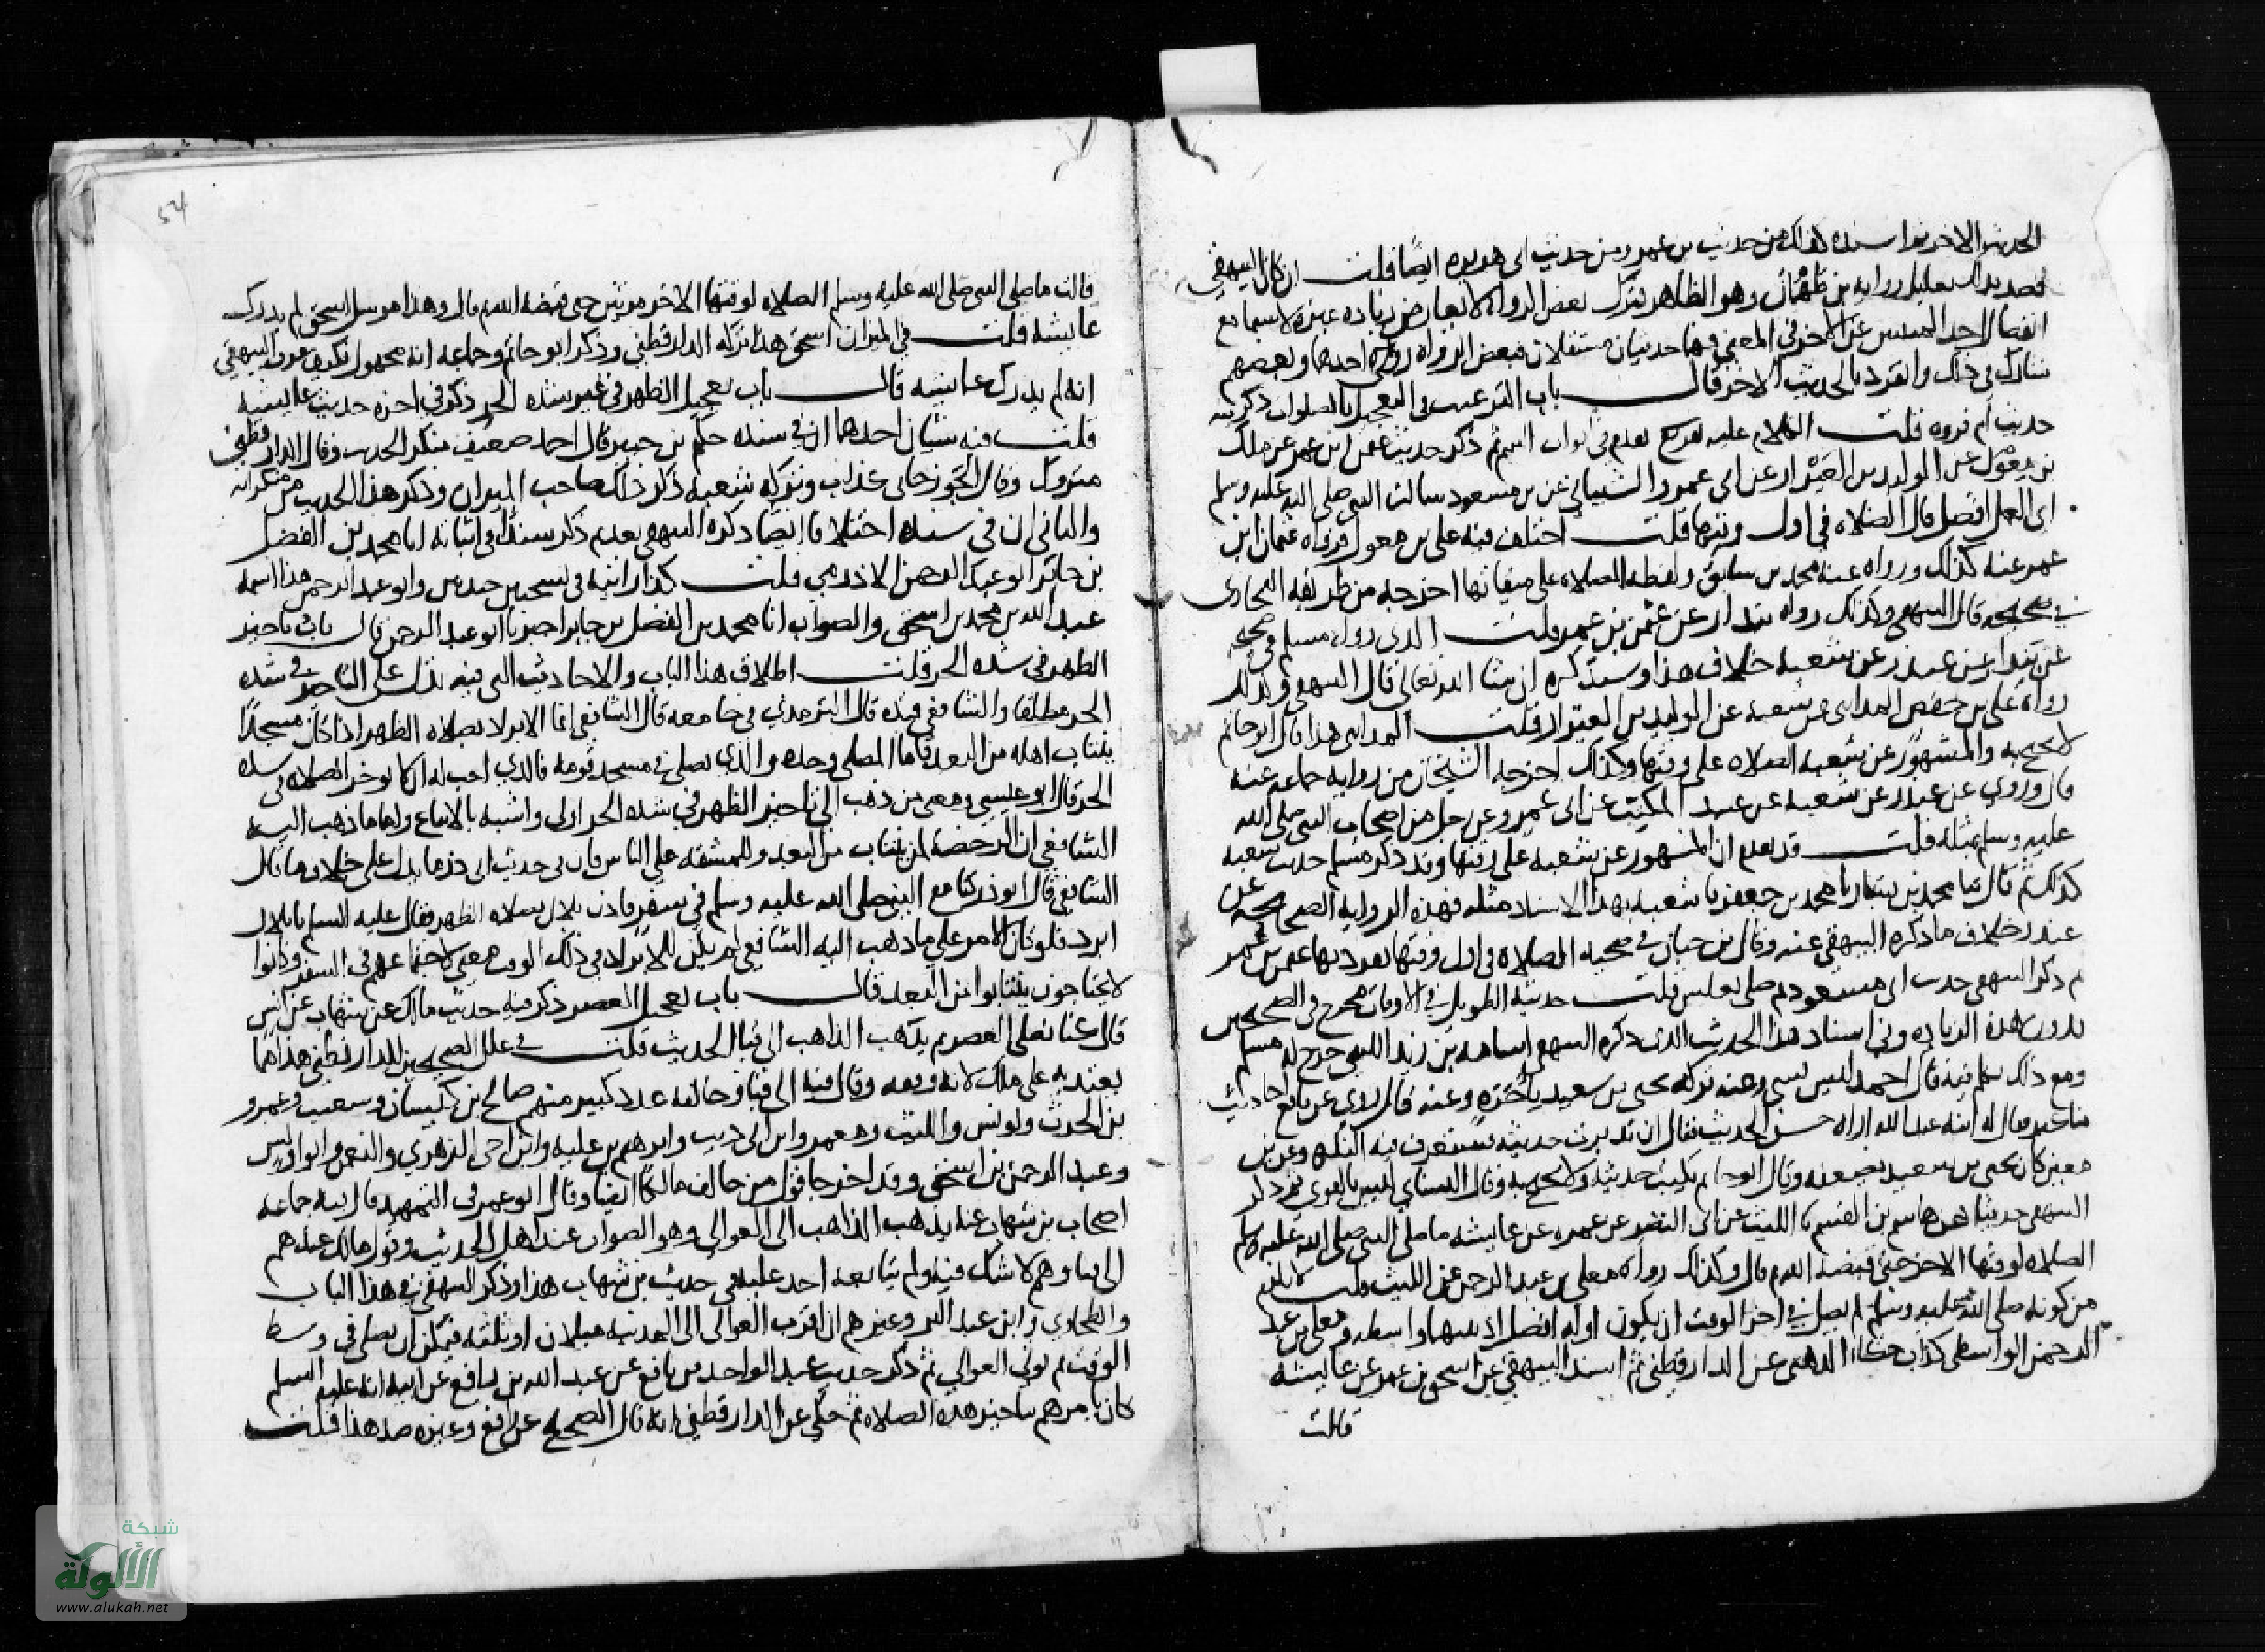 الحديث الاخر بما اسنده كذلك من حديث بن عمرو ومن حديث ابى هريرة ايضا قلت ان كان البيهقي
قصد بذلك تعليل رواية بن طهمان وهو الظاهر فترك بعض الرواة لا يعارض زيادة غيره لا سيما مع
انفصال احد الحديثين عن الاخر في المعنى فهما حديثان مستقلان فبعض الرواة روى احدهما وبعضهم
شارك في ذلك وانفرد بالحديث الاخر قال باب الترغيب في التعجيل بالصلوات ذكر فيه
حديث ام فروه قلت الكلام عليه تقدم في ابواب التيمم ثم ذكر حديث عثمن ابن عمر عن ملك
بن مغول عن الوليد بن العيزار عن ابى عمرو الشيباني عن بن مسعود سالت النبى صلى الله عليه وسلم
اى العمل افضل قال الصلاة في اول وقتها قلت اختلف فيه على بن مغول فرواه عثمان ابن
عمر عنه كذلك ورواه عنه محمد بن سابق ولفظه الصلاة على ميقاتها اخرجه من طريقه البخارى
في صحيحه قال البيهقى وكذلك رواه بندار عن عثمن بن عمر قلت الذى رواه مسلم في صحيحه
عن بندار عن غندر عن شعبه خلاف هذا وسنذكره ان شا الله تعالى قال البيهقى وكذلك
رواه على بن حفص المدائنى عن شعبة عن الوليد بن العيزار قلت المدائنى هذا قال ابو حاتم
لا يحتج به والمشهور عن شعبه الصلاه على وقتها وكذلك اخرجه الشيخان من رواية جماعة عنه
قال وروى عن غندر عن شعبه عن عبيد المكتب عن ابى عمرو عن رجل من اصحاب النبى صلى الله
عليه وسلم بمثله قلت قد تقدم ان المشهور عن شعبه على وقتها وقد ذكر مسلم حديث شعبه
كذلك ثم قال ثنا محمد بن بشار نا محمد بن جعفر نا شعبه بهذا الاسناد مثله فهذه الرواية الصحيحة عن
غندر خلاف ما ذكره البيهقي عنه وقال بن حبان في صحيحه الصلاة فى اول وقتها تفرد بها عثمن بن عمر
ثم ذكر البيهقى حديث ابى مسعود ثم صلى بغلس قلت حديثه الطويل في الاوقات مخرج في الصحيحين
بدون هذه الزيادة وفى اسناد هذا الحديث الذى ذكره البيهقى اسامه بن زيد الليثى خرج له مسلم
ومع ذلك تكلم فيه قال احمد ليس بشى وعنه تركه يحيى بن سعيد باخره وعنه قال روى عن نافع احاديث
مناكير فقال له ابنه عبد الله اراه حسن الحديث فقال ان تدبرت حديثه فستعرف فيه النكرة وعن بن
معين كان يحيى بن سعيد يضعفه وقال ابو حاتم يكتب حديثه ولا يحتج به وقال النسائى ليس بالقوى ثم ذكر
البيهقى حديثا عن هاشم بن القسم نا الليث عن ابى النضر عن عمره عن عايشه ما صلى النبى صلى الله عليه وسلم
الصلاه لوقتها الاخر حتى قبضه الله ثم قال وكذلك رواه معلى بن عبد الرحمن عن الليث قلت لا يلزم
من كونه صلى الله عليه وسلم لم يصل في اخر الوقت ان يكون اوله افضل اذ بينهما واسطه ومعلى بن عبد
الرحمن الواسطى كذاب حكاه الذهبى عن الدارقطنى ثم اسند البيهقي عن اسحق بن عمر عن عايشه
قالت
54
قالت ما صلى النبى صلى الله عليه وسلم الصلاة لوقتها الاخر مرتين حتى قبضه الله ثم قال وهذا مرسل اسحق لم يدرك
عايشه قلت في الميزان اسحق هذا تركه الدارقطني وذكر ابو حاتم وجماعة انه مجهول فكيف عرف البيهقي
انه لم يدرك عايشه قال باب تعجيل الظهر في غير شدة الحر ذكر في اخره حديث عايشه
قلت فيه شيئان احدهما ان في سنده حكيم بن جبير قال احمد ضعيف منكر الحديث وقال الدارقطني
متروك وقال الجوزجانى كذاب وتركه شعبه ذكر ذلك صاحب الميزان وذكر هذا الحديث من منكراته
والثانى ان فى سنده اختلافا ايضا ذكره البيهقى بعد ثم ذكر سندا فى اثنائه انا محمد بن الفضل
بن جابر ابو عبد الرحمن الاذرمى قلت كذا رايته في نسختين جيدتين وابو عبد الرحمن هذا اسمه
عبد الله بن محمد بن اسحق والصواب انا محمد بن الفضل بن جابر اخبرنا ابو عبد الرحمن قال باب تاخير
الظهر في شدة الحر قلت اطلاق هذا الباب والاحاديث التى فيه تدل على التاخير في شدة
الحر مطلقا والشافعى قيده قال الترمذي في جامعه قال الشافعى انما الابراد بصلاة الظهر اذا كان مسجدا
ينتاب اهله من البعد فاما المصلى وحده والذى يصلى في مسجد قومه فالذي احب له ان لا يوخر الصلاة في شدة
الحر قال ابو عيسى ومعنى من ذهب الى تاخير الظهر في شدة الحر اولى واشبه بالاتباع واما ما ذهب اليه
الشافعى ان الرخصة لمن ينتاب من البعد وللمشقه على الناس فان فى حديث ابى ذر ما يدل على خلاف ما قال
الشافعى قال ابو ذر كنا مع النبى صلى الله عليه وسلم في سفر فاذن بلال بصلاة الظهر فقال عليه السلم يا بلال
ابرد فلو كان الامر على ما ذهب اليه الشافعى لم يكن للابراد في ذلك الوقت معنى لاجتماعهم فى السفر وكانوا
لا يحتاجون ينتابوا من البعد قال باب تعجيل العصر ذكر فيه حديث مالك عن بن شهاب عن انس
قال كنا نصلى العصر ثم يذهب الذاهب الى قبا الحديث قلت في علل الصحيحين للدارقطنى هذا مما
يعتد به على ملك لانه رفعه وقال فيه الى قبا وخالفه عدد كبير منهم صالح بن كيسان وشعيب وعمرو
بن الحرث ويونس والليث ومعمر وابن ابى ذيب وابرهيم بن عليه وابن اخى الزهري والنعمن وابو اويس
وعبد الرحمن بن اسحق وقد اخرجا قول من خالف مالكا ايضا وقال ابو عمر فى التمهيد قال فيه جماعة
اصحاب بن شهاب عنه يذهب الذاهب الى العوالى وهو الصواب عند اهل الحديث وقول مالك عندهم
الى قبا وهم لا شك فيه ولم يتابعه احد عليه فى حديث بن شهاب هذا وذكر البيهقى في هذا الباب
والطحاوى وابن عبد البر وغيرهم ان اقرب العوالى الى المدينة ميلان او ثلثه فيمكن ان يصلى في وسط
الوقت ثم يوتى العوالى ثم ذكر حديث عبد الواحد بن نافع عن عبد الله بن رافع عن ابيه انه عليه السلم
كان يامرهم بتاخير هذه الصلاة ثم حكى عن الدارقطنى انه قال الصحيح عن رافع وغيره ضد هذا قلت
شبكة
الألوكة
www.alukah.net